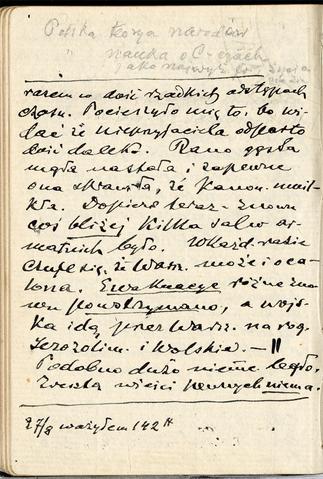 Polska Kozą narodów
nauka o Czczach
ako najwyż
razem w dość rzadkich odstępach
czasu. Pocieszyło mię to, bo wi-
dać że nieprzyjaciela odparto
dość daleko. Rano gęsta
mgła nastała i zapewne
ona sprawiła, że kanon. umil-
kła. Dopiero teraz - znowu
coś bliżej kilka salw ar-
matnich było. W każd. razie
czuje się, że Warsz. może i oca-
lona. Ewakuację różne zno-
wu powstrzymano, a wojs-
ka idą przez Warsz. na rog.
Jerozolim. i Wolskie. — ||
Podobno dużo niemc. legło.
Zresztą wieści pewnych niema.
27/8 ważyłem 142 H